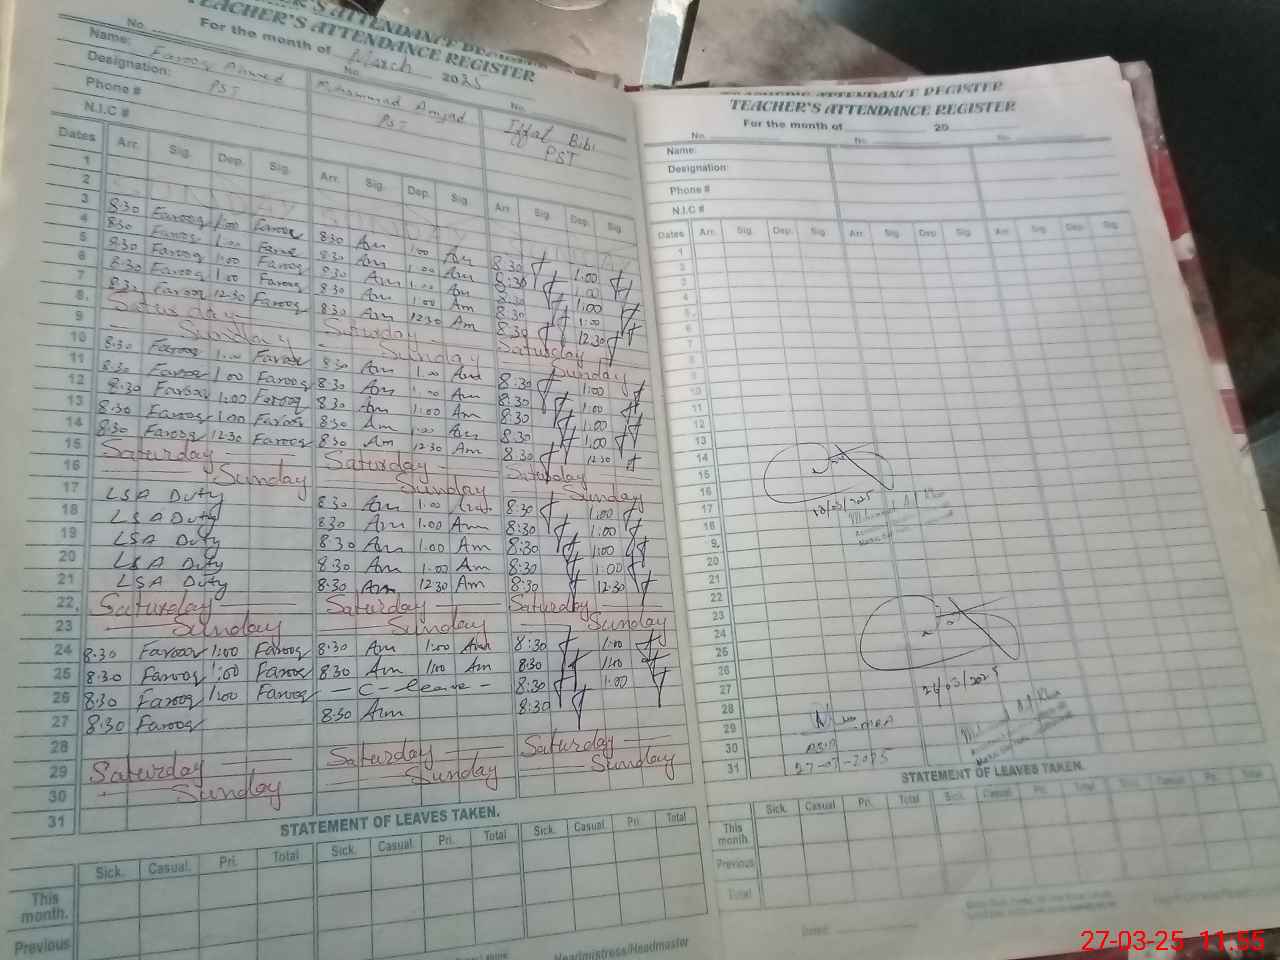 TEACHER'S ATTENDANCE REGISTER
No. For the month of March 2025
No. No.
Name: Farooq Ahmed Muhammad Amjad Iffat Bibi
Designation: PST PST PST
Phone #
N.I.C #
Dates Arr. Sig. Dep. Sig. Arr. Sig. Dep. Sig. Arr. Sig. Dep. Sig.
1
2
3 8:30 Farooq 1:00 Farooq 8:30 Am 1:00 Am 8:30 1:00
4 8:30 Farooq 1:00 Farooq 8:30 Am 1:00 Am 8:30 1:00
5 8:30 Farooq 1:00 Farooq 8:30 Am 1:00 Am 8:30 1:00
6 8:30 Farooq 1:00 Farooq 8:30 Am 1:00 Am 8:30 1:00
7 8:30 Farooq 12:30 Farooq 8:30 Am 12:30 Am 8:30 12:30
8 Saturday Saturday Saturday
9 Sunday Sunday Sunday
10 8:30 Farooq 1:00 Farooq 8:30 Am 1:00 Am 8:30 1:00
11 8:30 Farooq 1:00 Farooq 8:30 Am 1:00 Am 8:30 1:00
12 8:30 Farooq 1:00 Farooq 8:30 Am 1:00 Am 8:30
13 8:30 Farooq 1:00 Farooq 8:30 Am 1:00 Am 8:30 1:00
14 8:30 Farooq 12:30 Farooq 8:30 Am 12:30 Am 8:30 12:30
15 Saturday Saturday Saturday
16 Sunday Sunday Sunday
17 LSA Duty 8:30 Am 1:00 8:30 1:00
18 LSA Duty 8:30 Am 1:00 Am 8:30 1:00
19 LSA Duty 8:30 Am 1:00 Am 8:30 1:00
20 LSA Duty 8:30 Am 1:00 Am 8:30 1:00
21 LSA Duty 8:30 Am 12:30 Am 8:30 12:30
22 Saturday Saturday Saturday
23 Sunday Sunday Sunday
24 8:30 Farooq 1:00 Farooq 8:30 Am 1:00 Am 8:30 1:00
25 8:30 Farooq 1:00 Farooq 8:30 Am 1:00 Am 8:30 1:00
26 8:30 Farooq 1:00 Farooq - C - leave - 8:30 1:00
27 8:30 Farooq 8:30 Am 8:30
28
29 Saturday Saturday Saturday
30 Sunday Sunday Sunday
31
STATEMENT OF LEAVES TAKEN.
Sick. Casual. Pri. Total Sick. Casual Pri. Total Sick. Casual. Pri. Total
This month.
Previous
Headmistress/Headmaster
TEACHER'S ATTENDANCE REGISTER
For the month of 20
No. No. No.
Name:
Designation:
Phone #
N.I.C #
Dates Arr. Sig. Dep. Sig. Arr. Sig. Dep Sig. Arr. Sig. Dep. Sig.
1
2
3
4
5
6
7
8
9
10
11
12
13
14
15
16
17
18
9
20
21
22
23
24
25
26
27
28
29
30
31
18/03/2025
26/03/2025
27-03-2025
STATEMENT OF LEAVES TAKEN.
Sick. Casual. Pri. Total Sick. Casual Pri. Total Sick. Casual Pri. Total
This month.
Previous
Total
Dated:
27-03-25 11:55